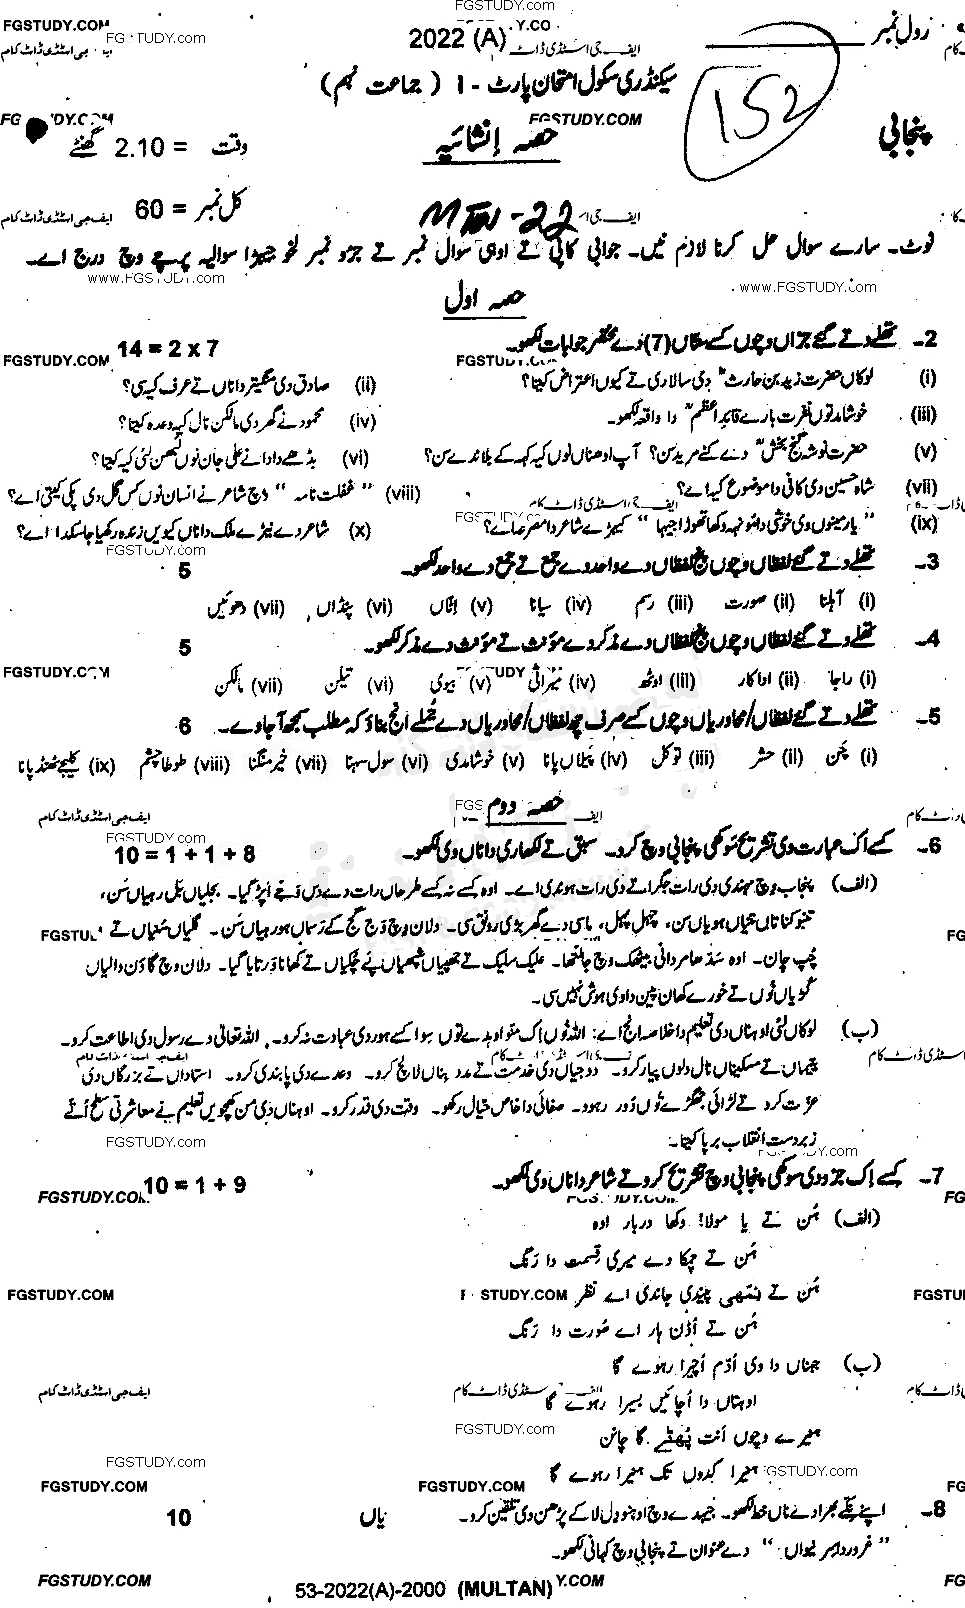 FGSTUDY.com
FGSTUDY.COM
2022 (A)
رول نمبر
سیکنڈری سکول امتحان پارٹ - I ( جماعت نہم )
152
پنجابی
حصہ اِنشائیہ
وقت = 2.10 گھنٹے
FGSTUDY.COM
کل نمبر = 60
ایف جی اسٹڈی ڈاٹ کام
MTN-22
نوٹ۔ سارے سوال حل کرنا لازم نیں۔ جوابی کاپی تے اوہی سوال نمبر تے جزو نمبر لکھو جیہڑا سوالیہ پرچے وچ درج اے۔
www.FGSTUDY.com
www.FGSTUDY.com
حصہ اول
2۔ تھلے دتے گئے جزاں وچوں کسے ستاں (7) دے مختصر جوابات لکھو۔ 14 = 2 x 7
(i) لوکاں حضرت زید بن حارثؓ دی سالاری تے کیوں اعتراض کیتا؟ (ii) صادق دی منگیتر دا ناں تے عرف کیہ سی؟
(iii) خوشامد توں نفرت بارے قائداعظمؒ دا واقعہ لکھو۔ (iv) محمود نے گھر دی مالکن نال کیہ وعدہ کیتا؟
(v) حضرت نوشہ گنج بخشؒ دے کنے مرید سن؟ آپ اوھناں نوں کیہ کہہ کے بلاندے سن؟ (vi) بڈھے دادا نے علی جان نوں لبھن لئی کیہ کیتا؟
(vii) شاہ حسین دی کافی دا موضوع کیہ اے؟ (viii) "غفلت نامہ" وچ شاعر نے انسان نوں کس گل دی پکی کیتی اے؟
(ix) "یار مینوں دی خوشی دا نونہہ دکھا تھوڑا جیہا" کیہڑے شاعر دا مصرعہ اے؟ (x) شاعر دے نیڑے ملک دا ناں کیویں زندہ رکھیا جا سکدا اے؟
3۔ تھلے دتے گئے لفظاں وچوں پنج لفظاں دے واحد دے جمع تے جمع دے واحد لکھو۔ 5
(i) آہلنا (ii) صورت (iii) رسم (iv) سیانا (v) اٹاں (vi) پنڈاں (vii) دھوئیں
4۔ تھلے دتے گئے لفظاں وچوں پنج لفظاں دے مذکر دے مؤنث تے مؤنث دے مذکر لکھو۔ 5
(i) راجا (ii) اداکار (iii) اوٹھ (iv) مہرانی (v) بیوی (vi) تیلن (vii) مالکن
5۔ تھلے دتے گئے لفظاں/محاوریاں وچوں کسے صرف چھ لفظاں/محاوریاں دے جملے انج بناؤ کہ مطلب سمجھ آ جاوے۔ 6
(i) چن (ii) حشر (iii) توکل (iv) پیلاں پانا (v) خوشامدی (vi) سول سہنا (vii) خیر منگنا (viii) طوطا چشم (ix) کلیجے ٹھنڈ پانا
حصہ دوم
6۔ کسے اک عبارت دی تشریح سوکھی پنجابی وچ کرو۔ سبق تے لکھاری دا ناں وی لکھو۔ 10 = 1 + 1 + 8
(الف) پنجاب وچ مہندی دی رات جگراتے دی رات ہوندی اے۔ اوہ کسے نہ کسے طرحاں رات دے دس وجے اپڑ گیا۔ بجلیاں بل رہیاں سن،
تنبو کناتاں تنیاں ہویاں سن، چہل پہل، ماسی دے گھر بڑی رونق سی۔ دلان وچ وج گج کے رسماں ہو رہیاں سن۔ گلیاں سنجیاں تے
چپ چان۔ اوہ سدھا مردانی بیٹھک وچ جا لتھا۔ علیک سلیک تے جپھیاں شپھیاں پے چکیاں تے کھانا ورتایا گیا۔ دلان وچ گاون والیاں
کڑیاں نوں تے خورے کھان پین دا وی ہوش نہیں سی۔
(ب) لوکاں لئی اوہناں دی تعلیم دا خلاصہ انج اے: اللہ نوں اک منو اوہدے توں سوا کسے ہور دی عبادت نہ کرو۔ اللہ تعالیٰ دے رسول دی اطاعت کرو۔
یتیماں تے مسکیناں نال دلوں پیار کرو۔ دوجیاں دی خدمت تے مدد بناں لالچ کرو۔ وعدے دی پابندی کرو۔ استاداں تے بزرگاں دی
عزت کرو تے لڑائی جھگڑے توں دور رہوو۔ صفائی دا خاص خیال رکھو۔ وقت دی قدر کرو۔ اوہناں دی من کھچویں تعلیم نے معاشرتی سطح اتے
زبردست انقلاب برپا کیتا۔
7۔ کسے اک جزو دی سوکھی پنجابی وچ تشریح کرو تے شاعر دا ناں وی لکھو۔ 10 = 1 + 9
(الف) ہُن تے یا مولا! دکھا دربار اوہ
ہُن تے چمکا دے میری قسمت دا رنگ
ہُن تے بنتھی چیندی جاندی اے نظر
ہُن تے اُڈن ہار اے صُورت دا رنگ
(ب) جہناں دا وی اُدّم اُچیرا رہوے گا
اوہناں دا اُچائیں بسیرا رہوے گا
ہنیرے وچوں اَنت پُھٹے گا چانن
ہنیرا کدوں تک ہنیرا رہوے گا
8۔ اپنے نکے بھرا دے ناں خط لکھو۔ جیہدے وچ اوہنوں دل لا کے پڑھن دی تلقین کرو۔ یاں 10
"غرور دا سر نیواں" دے عنوان تے پنجابی وچ کہانی لکھو۔
FGSTUDY.COM
53-2022(A)-2000 (MULTAN)